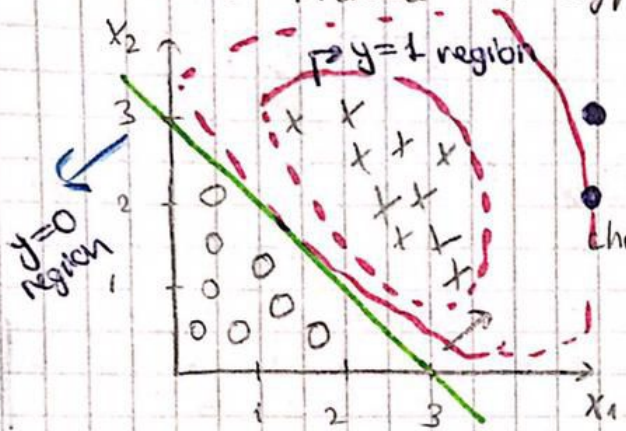 X2
y=1 region
3
2
1
y=0
region
1
2
3
X1